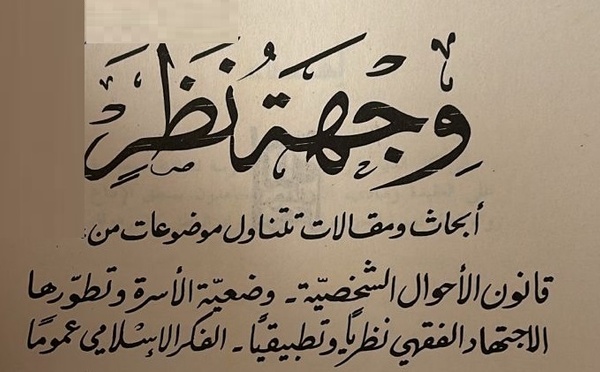 وِجهَة نُظَرٍ
أبحاث ومقالات تتناول موضوعات من:
قانون الأحوال الشخصيّة - وضعيّة الأسرة وتطوّرها
الاجتهاد الفقهي نظريًا وتطبيقيًّا - الفكر الإسْلامي عمومًا